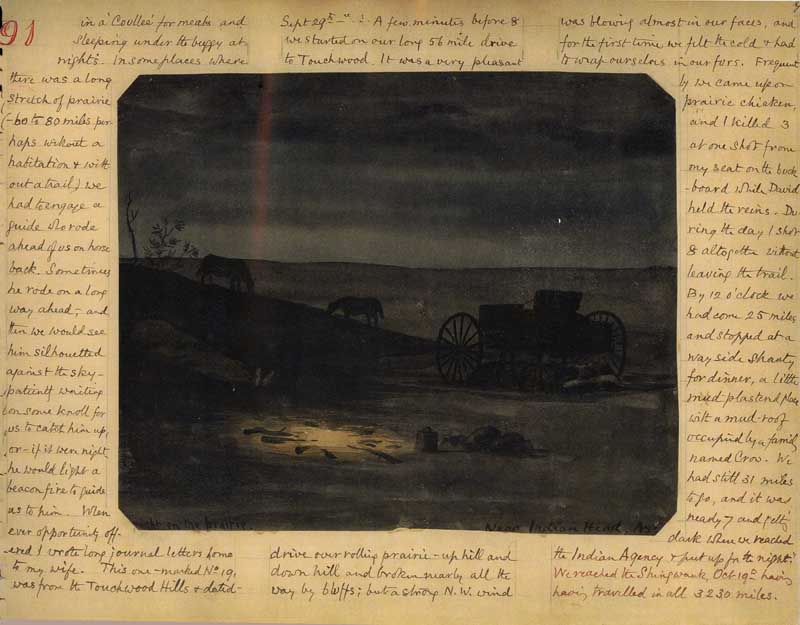 91
in a 'Coullee' for meals and
sleeping under the buggy at
nights. In some places where
there was a long
stretch of prairie
(-60 to 80 miles per
haps without a
habitation & with
out a trail) we
had to engage a
guide who rode
ahead of us on horse
back. Sometimes
he rode on a long
way ahead, and
then we would see
him silhouetted
against the sky -
patiently waiting
on some knoll for
us to catch him up,
or - if it were night
he would light a
beacon fire to guide
us to him. When
ever opportunity off-
ered I wrote long journal letters home
to my wife. This one - marked No 19,
was from the Touchwood Hills & dated -
Sept 29th A few minutes before 8
we started on our long 56 mile drive
to Touchwood. It was a very pleasant
drive over rolling prairie - up hill and
down hill and broken nearly all the
way by bluffs; but a strong N.W. wind
was blowing almost in our faces, and
for the first time we felt the cold & had
to wrap ourselves in our furs. Frequent
ly we came upon
prairie chicken,
and I killed 3
at one shot from
my seat on the buck
-board while David
held the reins. Du
ring the day I shot
8 altogether without
leaving the trail.
By 12 o'clock we
had come 25 miles
and stopped at a
way side Shanty
for dinner, a little
mud plastered place
with a mud-roof
occupied by a family
named Crow. We
had still 31 miles
to go, and it was
nearly 7 and gettg
dark when we reached
the Indian Agency & put up for the night.
We reached the Shingwauk, Oct 19th having
having travelled in all 3230 miles.
night on the prairie.
Near Indian Head,